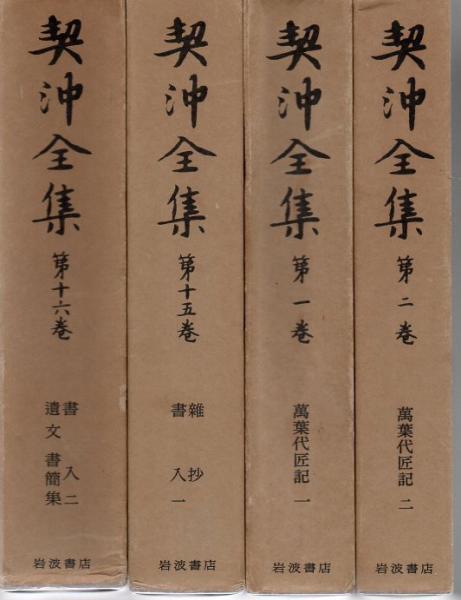 契沖全集
第十六巻
書入二
遺文 書簡集
岩波書店
契沖全集
第十五巻
雜抄
書入一
岩波書店
契沖全集
第一巻
萬葉代匠記 一
岩波書店
契沖全集
第二巻
萬葉代匠記 二
岩波書店